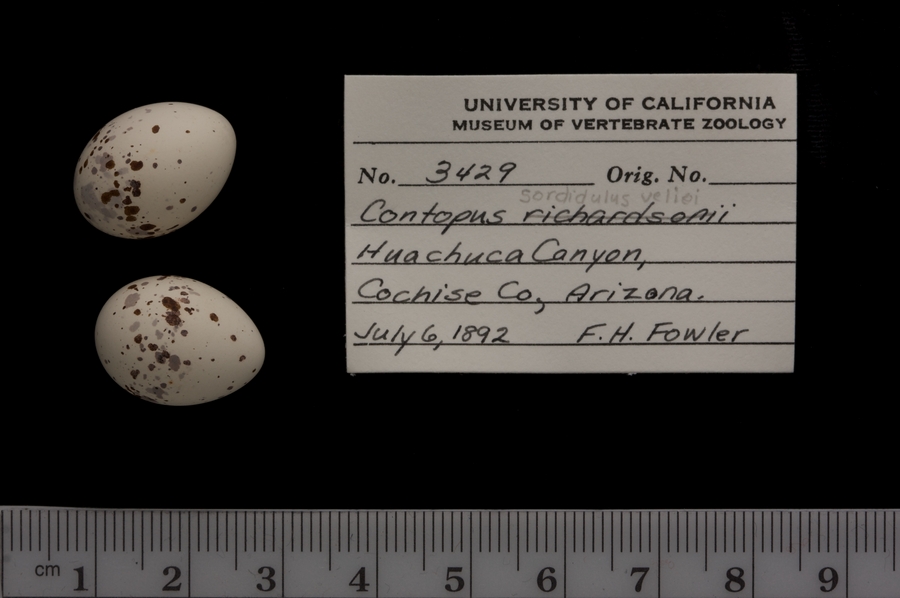 UNIVERSITY OF CALIFORNIA
MUSEUM OF VERTEBRATE ZOOLOGY
No. 3429 Orig. No.
sordidulus veliei
Contopus richardsonii
Huachuca Canyon,
Cochise Co., Arizona.
July 6, 1892 F.H. Fowler
cm 1 2 3 4 5 6 7 8 9